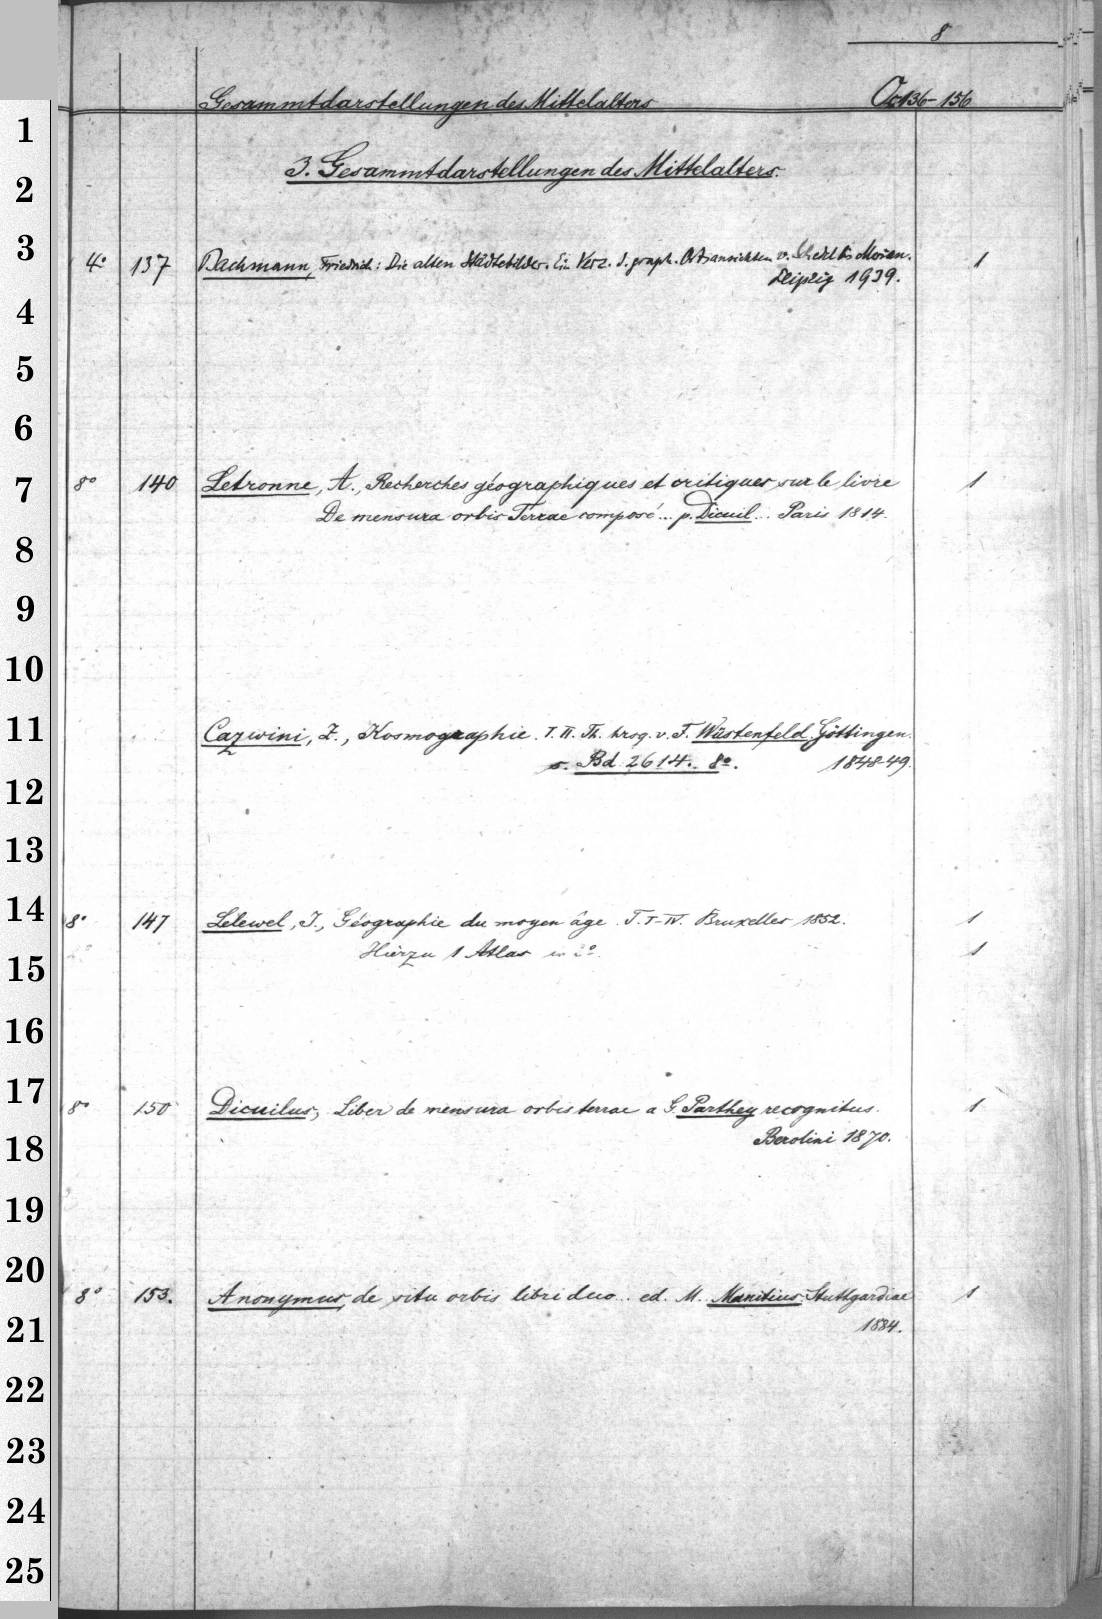 8
Gesammtdarstellungen des Mittelalters Oc 136-156
3. Gesammtdarstellungen des Mittelalters.
1
2
3
4
5
6
7
8
9
10
11
12
13
14
15
16
17
18
19
20
21
22
23
24
25
4° 137 Bachmann, Friedrich: Die alten Städtebilder. Ein Verz. d. graph. Ortsansichten v. Schedel bis Merian. 1
Leipzig 1939.
8° 140 Letronne, A., Recherches géographiques et critiques sur le livre 1
De mensura orbis Terrae composé... p. Dicuil... Paris 1814.
Cazwini, Z., Kosmographie. I. II. Th. hrsg. v. F. Wüstenfeld. Göttingen.
s. Bd 2614. 8°. 1848-49.
8° 147 Lelewel, J., Géographie du moyen âge. T. I-IV. Bruxelles 1852. 1
Hierzu 1 Atlas in 2°. 1
8° 150 Dicuilus, Liber de mensura orbis terrae a G. Parthey recognitus. 1
Berolini 1870.
8° 153. Anonymus, de situ orbis libri duo. ed. M. Manitius. Stuttgardiae 1
1884.